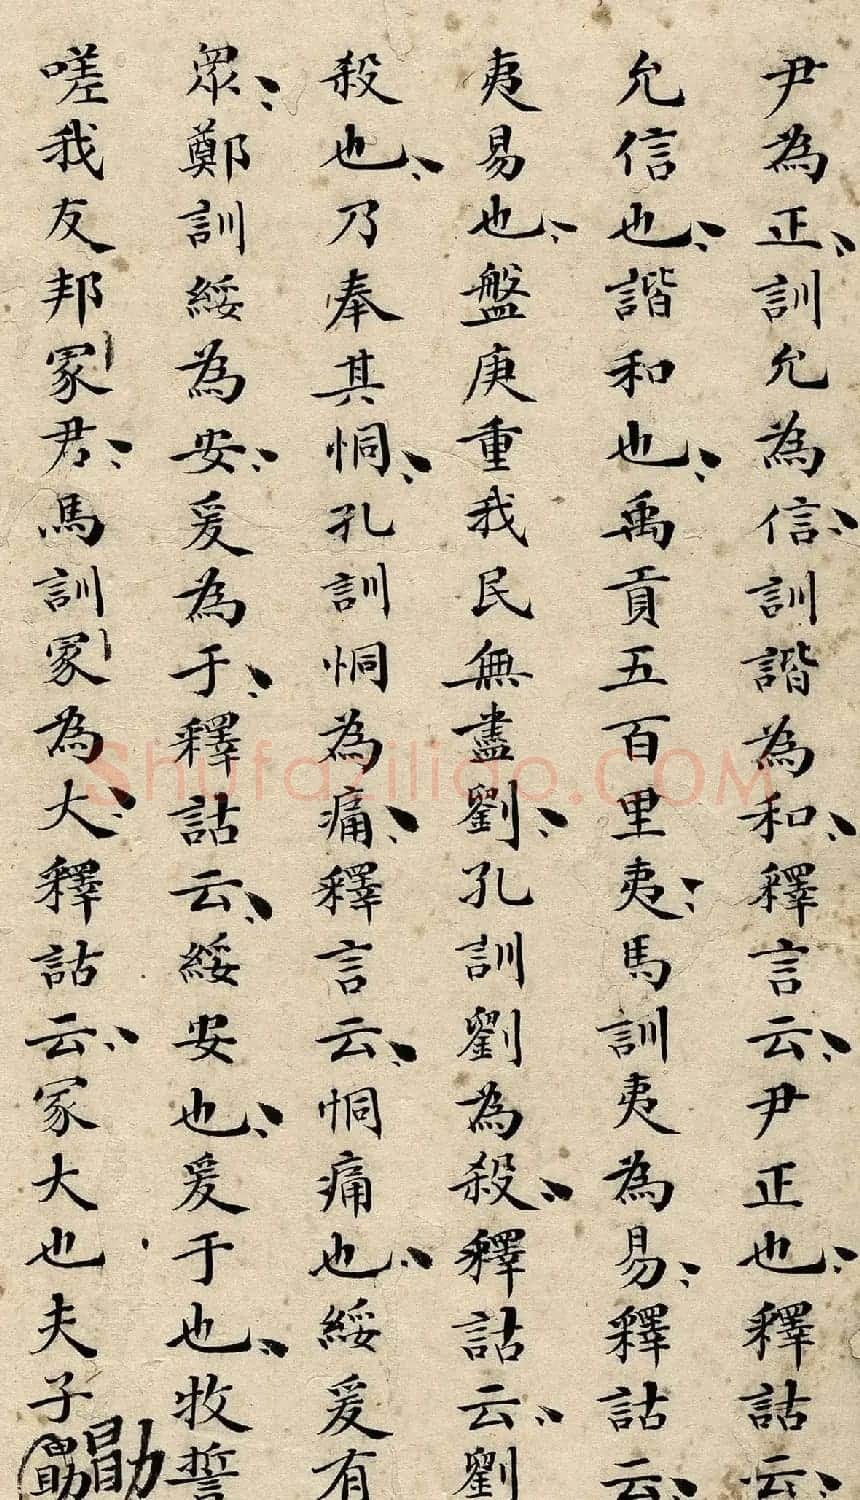 尹為正訓允為信訓諧為和釋言云尹正也釋詁云
允信也諧和也禹貢五百里夷馬訓夷為易釋詁云
夷易也盤庚重我民無盡劉孔訓劉為殺釋詁云劉
殺也乃奉其恫孔訓恫為痛釋言云恫痛也綏爰有
眾鄭訓綏為安爰為于釋詁云綏安也爰于也牧誓
嗟我友邦冢君馬訓冢為大釋詁云冢大也夫子勖
勖
Shufaziliao.COM